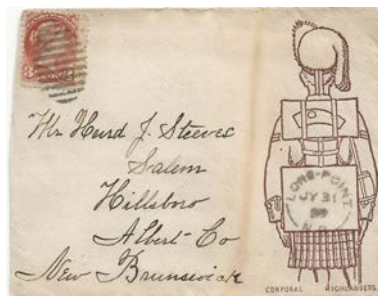 3
Mr Hurd J. Steeves
Salem
Hillsboro
Albert Co
New Brunswick
LONG-POINT
JY 31
N.B.
CORPORAL HIGHLANDERS